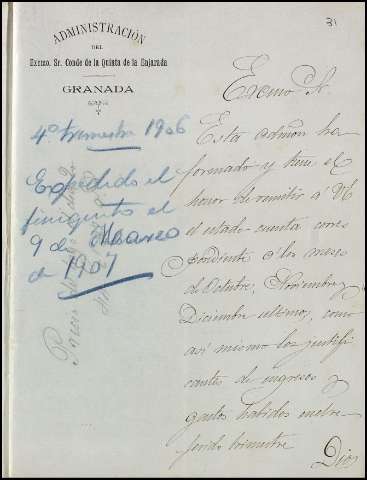 31
ADMINISTRACIÓN
DEL
Excmo. Sr. Conde de la Quinta de la Enjarada
GRANADA
4º trimestre 1906
Expedido el
finiquito el
9 de Marzo
de 1907
Excmo Sr.
Esta admon ha
formado y tiene el
honor de remitir á VE
el estado cuenta corres
pondiente á los meses
de Octubre, Noviembre y
Diciembre ultimo, como
asi mismo los justifi
cantes de ingresos y
gastos habidos en el re-
ferido trimestre
Dios